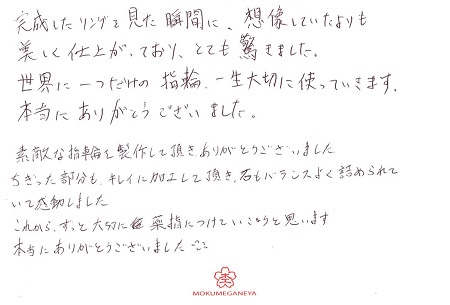 完成したリングを見た瞬間に、想像していたよりも
美しく仕上がっており、とても驚きました。
世界に一つだけの指輪、一生大切に使っていきます。
本当にありがとうございました。
素敵な指輪を製作して頂き、ありがとうございました
ちぎった部分も、キレイに加工して頂き、石もバランスよく詰められて
いて感動しました
これから、ずっと大切に 薬指につけていこうと思います
本当にありがとうございました
MOKUMEGANEYA